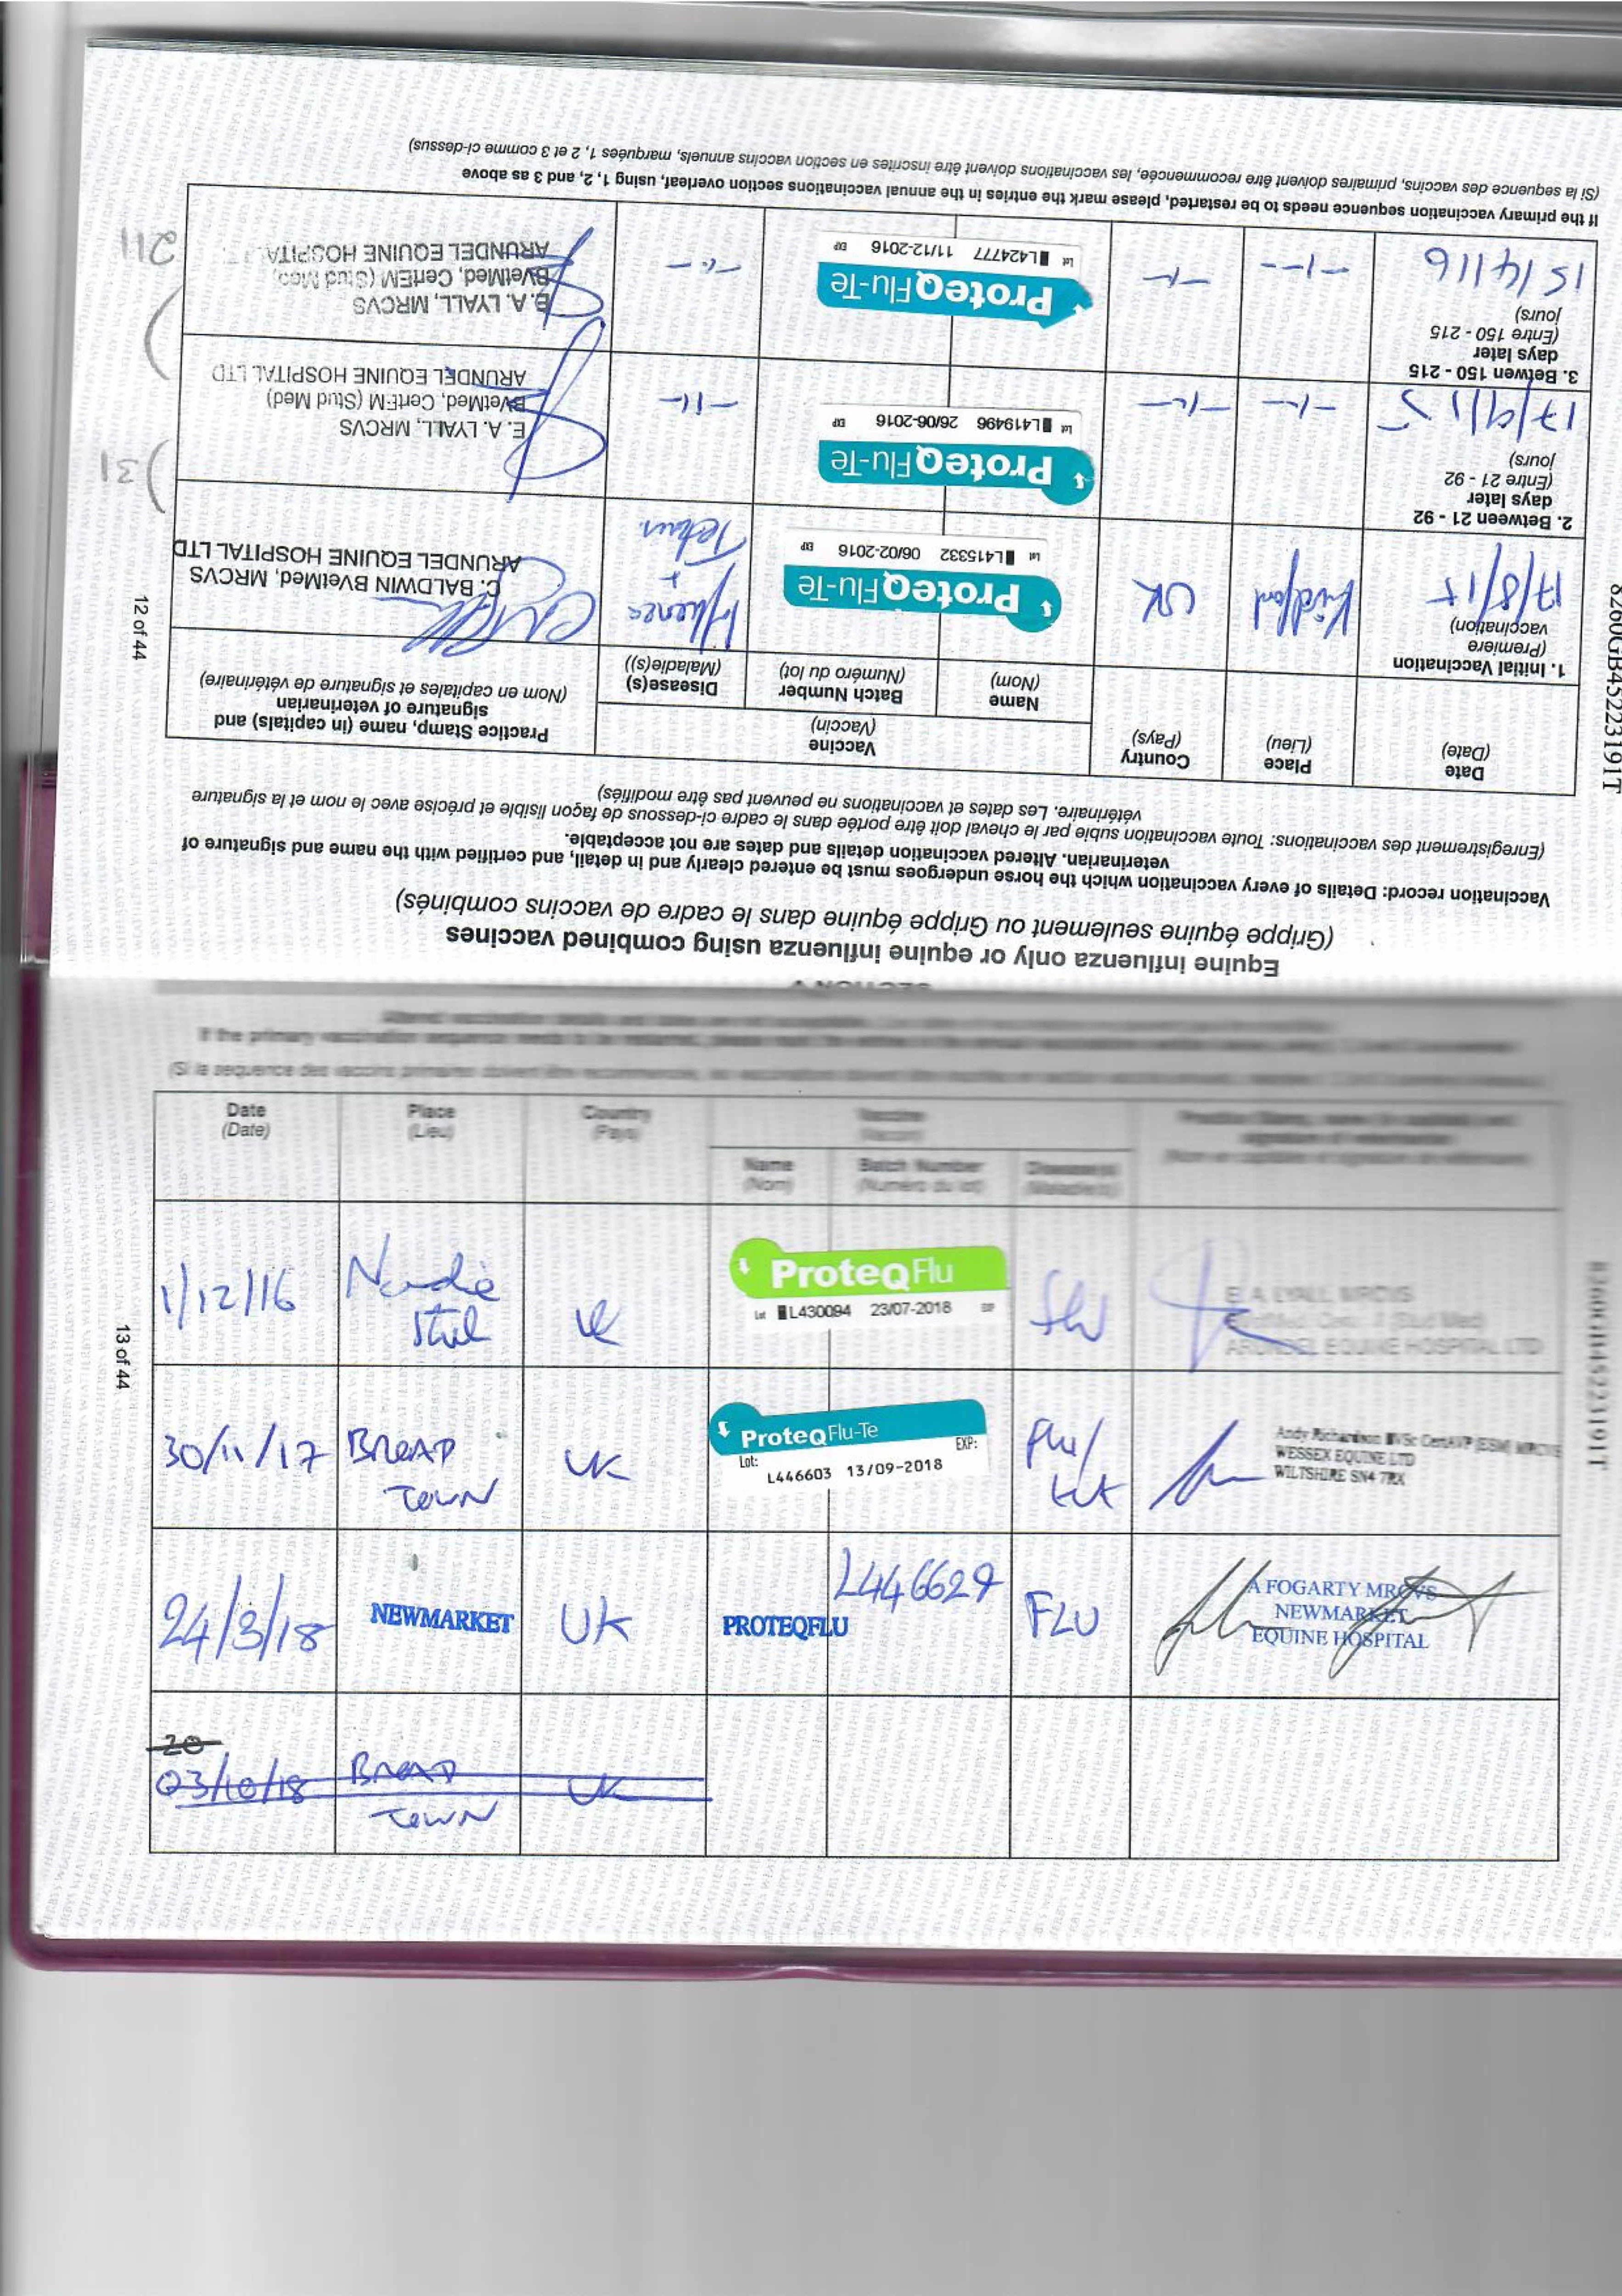 12 of 44
8260GB45223191T
SECTION A
Equine influenza only or equine influenza using combined vaccines
(Grippe équine seulement ou Grippe équine dans le cadre de vaccins combinés)
Vaccination record: Details of every vaccination which the horse undergoes must be entered clearly and in detail, and certified with the name and signature of
veterinarian. Altered vaccination details and dates are not acceptable.
(Enregistrement des vaccinations: Toute vaccination subie par le cheval doit être portée dans le cadre ci-dessous de façon lisible et précise avec le nom et la signature
vétérinaire. Les dates et vaccinations ne peuvent pas être modifiées)
Date
(Date)
Place
(Lieu)
Country
(Pays)
Vaccine
(Vaccin)
Name
(Nom)
Batch Number
(Numéro du lot)
Disease(s)
(Maladie(s))
Practice Stamp, name (in capitals) and
signature of veterinarian
(Nom en capitales et signature de vétérinaire)
1. Initial Vaccination
(Premiere
vaccination)
17/8/15
Kirdford
UK
ProteqFlu-Te
Lot L415332 06/02-2016 EXP
Influenza
+
Tetanus.
C. BALDWIN BVetMed, MRCVS
ARUNDEL EQUINE HOSPITAL LTD
2. Between 21 - 92
days later
(Entre 21 - 92
jours)
17/9/15
-"-
-"-
ProteqFlu-Te
Lot L419496 26/06-2016 EXP
-"-
E. A. LYALL, MRCVS
BVetMed, CertEM (Stud Med)
ARUNDEL EQUINE HOSPITAL LTD
) 31
3. Betwen 150 - 215
days later
(Entre 150 - 215
jours)
15/4/16
-"-
-"-
ProteqFlu-Te
Lot L424777 11/12-2016 EXP
-"-
E. A. LYALL, MRCVS
BVetMed, CertEM (Stud Med)
ARUNDEL EQUINE HOSPITAL
) 211
If the primary vaccination sequence needs to be restarted, please mark the entries in the annual vaccinations section overleaf, using 1, 2, and 3 as above
(Si la sequence des vaccins, primaires doivent être recommencée, les vaccinations doivent être inscrites en section vaccins annuels, marquées 1, 2 et 3 comme ci-dessus)
If the primary vaccination sequence needs to be restarted, please
(Si la sequence des vaccins primaires doivent être
Date
(Date)
Place
(Lieu)
Country
(Pays)
Vaccine
(Vaccin)
Name
(Nom)
Batch Number
(Numéro du lot)
Disease(s)
(Maladie(s))
1/12/16
Stud
UK
ProteqFlu
Lot L430094 23/07-2018 EXP
Flu
E. A. LYALL, MRCVS
(Stud Med)
ARUNDEL EQUINE HOSPITAL LTD
30/11/17
BROAD
TOWN
UK
ProteqFlu-Te
Lot: EXP:
L446603 13/09-2018
Flu/
tet
Andy Richardson BVSc CertAVP (ESM) MRCVS
WESSEX EQUINE LTD
WILTSHIRE SN4 7RX
24/3/18
NEWMARKET
UK
PROTEQFLU
L446629
FLU
A FOGARTY MRCVS
NEWMARKET
EQUINE HOSPITAL
20
03/10/18
BROAD
TOWN
UK
13 of 44
8260GB45223191T